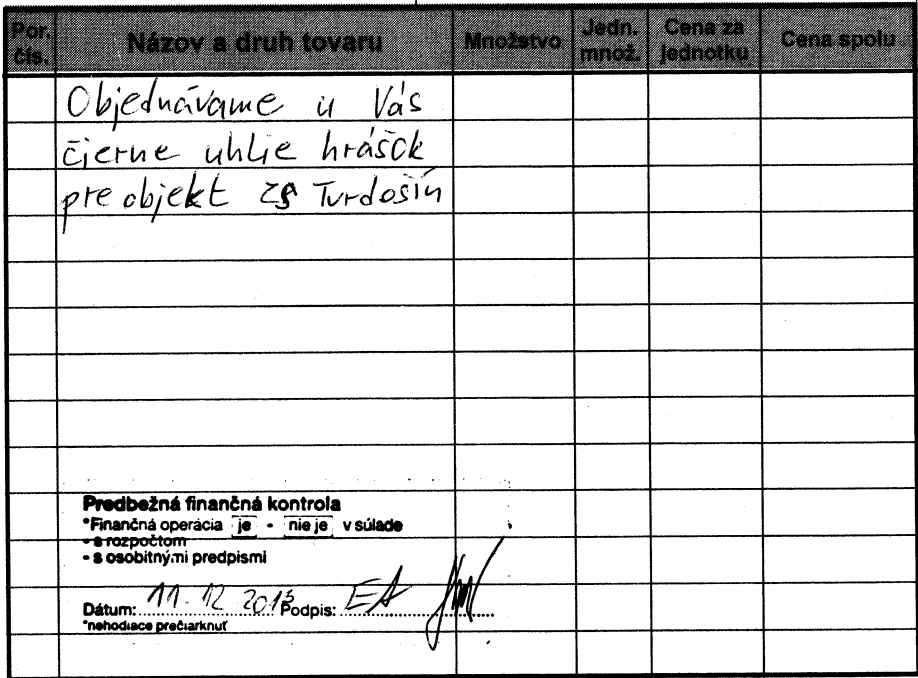 Por. čís. Názov a druh tovaru Množstvo Jedn. množ. Cena za jednotku Cena spolu
Objednávame u Vás
čierne uhlie hrášok
pre objekt ZŠ Tvrdošín
Predbežná finančná kontrola
*Finančná operácia je - nie je v súlade
- s rozpočtom
- s osobitnými predpismi
Dátum: 11.12 2013 Podpis:
*nehodiace prečiarknuť